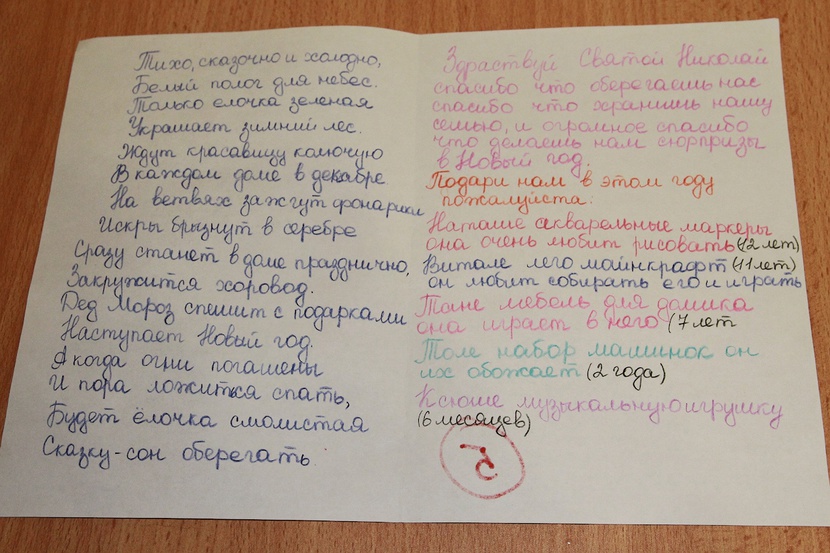 Тихо, сказочно и холодно,
Белый полог для небес.
Только ёлочка зеленая
Украшает зимний лес.
Ждут красавицу колючую
В каждом доме в декабре
На ветвях зажгут фонарики
Искры брызнут в серебре
Сразу станет в доме празднично,
Закружится хоровод.
Дед Мороз спешит с подарками
Наступает Новый год.
А когда огни погашены
И пора ложиться спать,
Будет ёлочка смолистая
Сказку-сон оберегать.
Здраствуй Святой Николай
спасибо что оберегаешь нас
спасибо что хранишь нашу
семью, и огромное спасибо
что делаешь нам сюрпризы
в Новый год.
Подари нам в этом году
пожалуйста:
Наташе акварельные маркеры
она очень любит рисовать (12 лет)
Витале лего майнкрафт (11 лет)
он любит собирать его и играть
Тане мебель для домика
она играет в него (7 лет
Толе набор машинок он
их обожает (2 года)
Ксюше музыкальную игрушку
(6 месяцев)